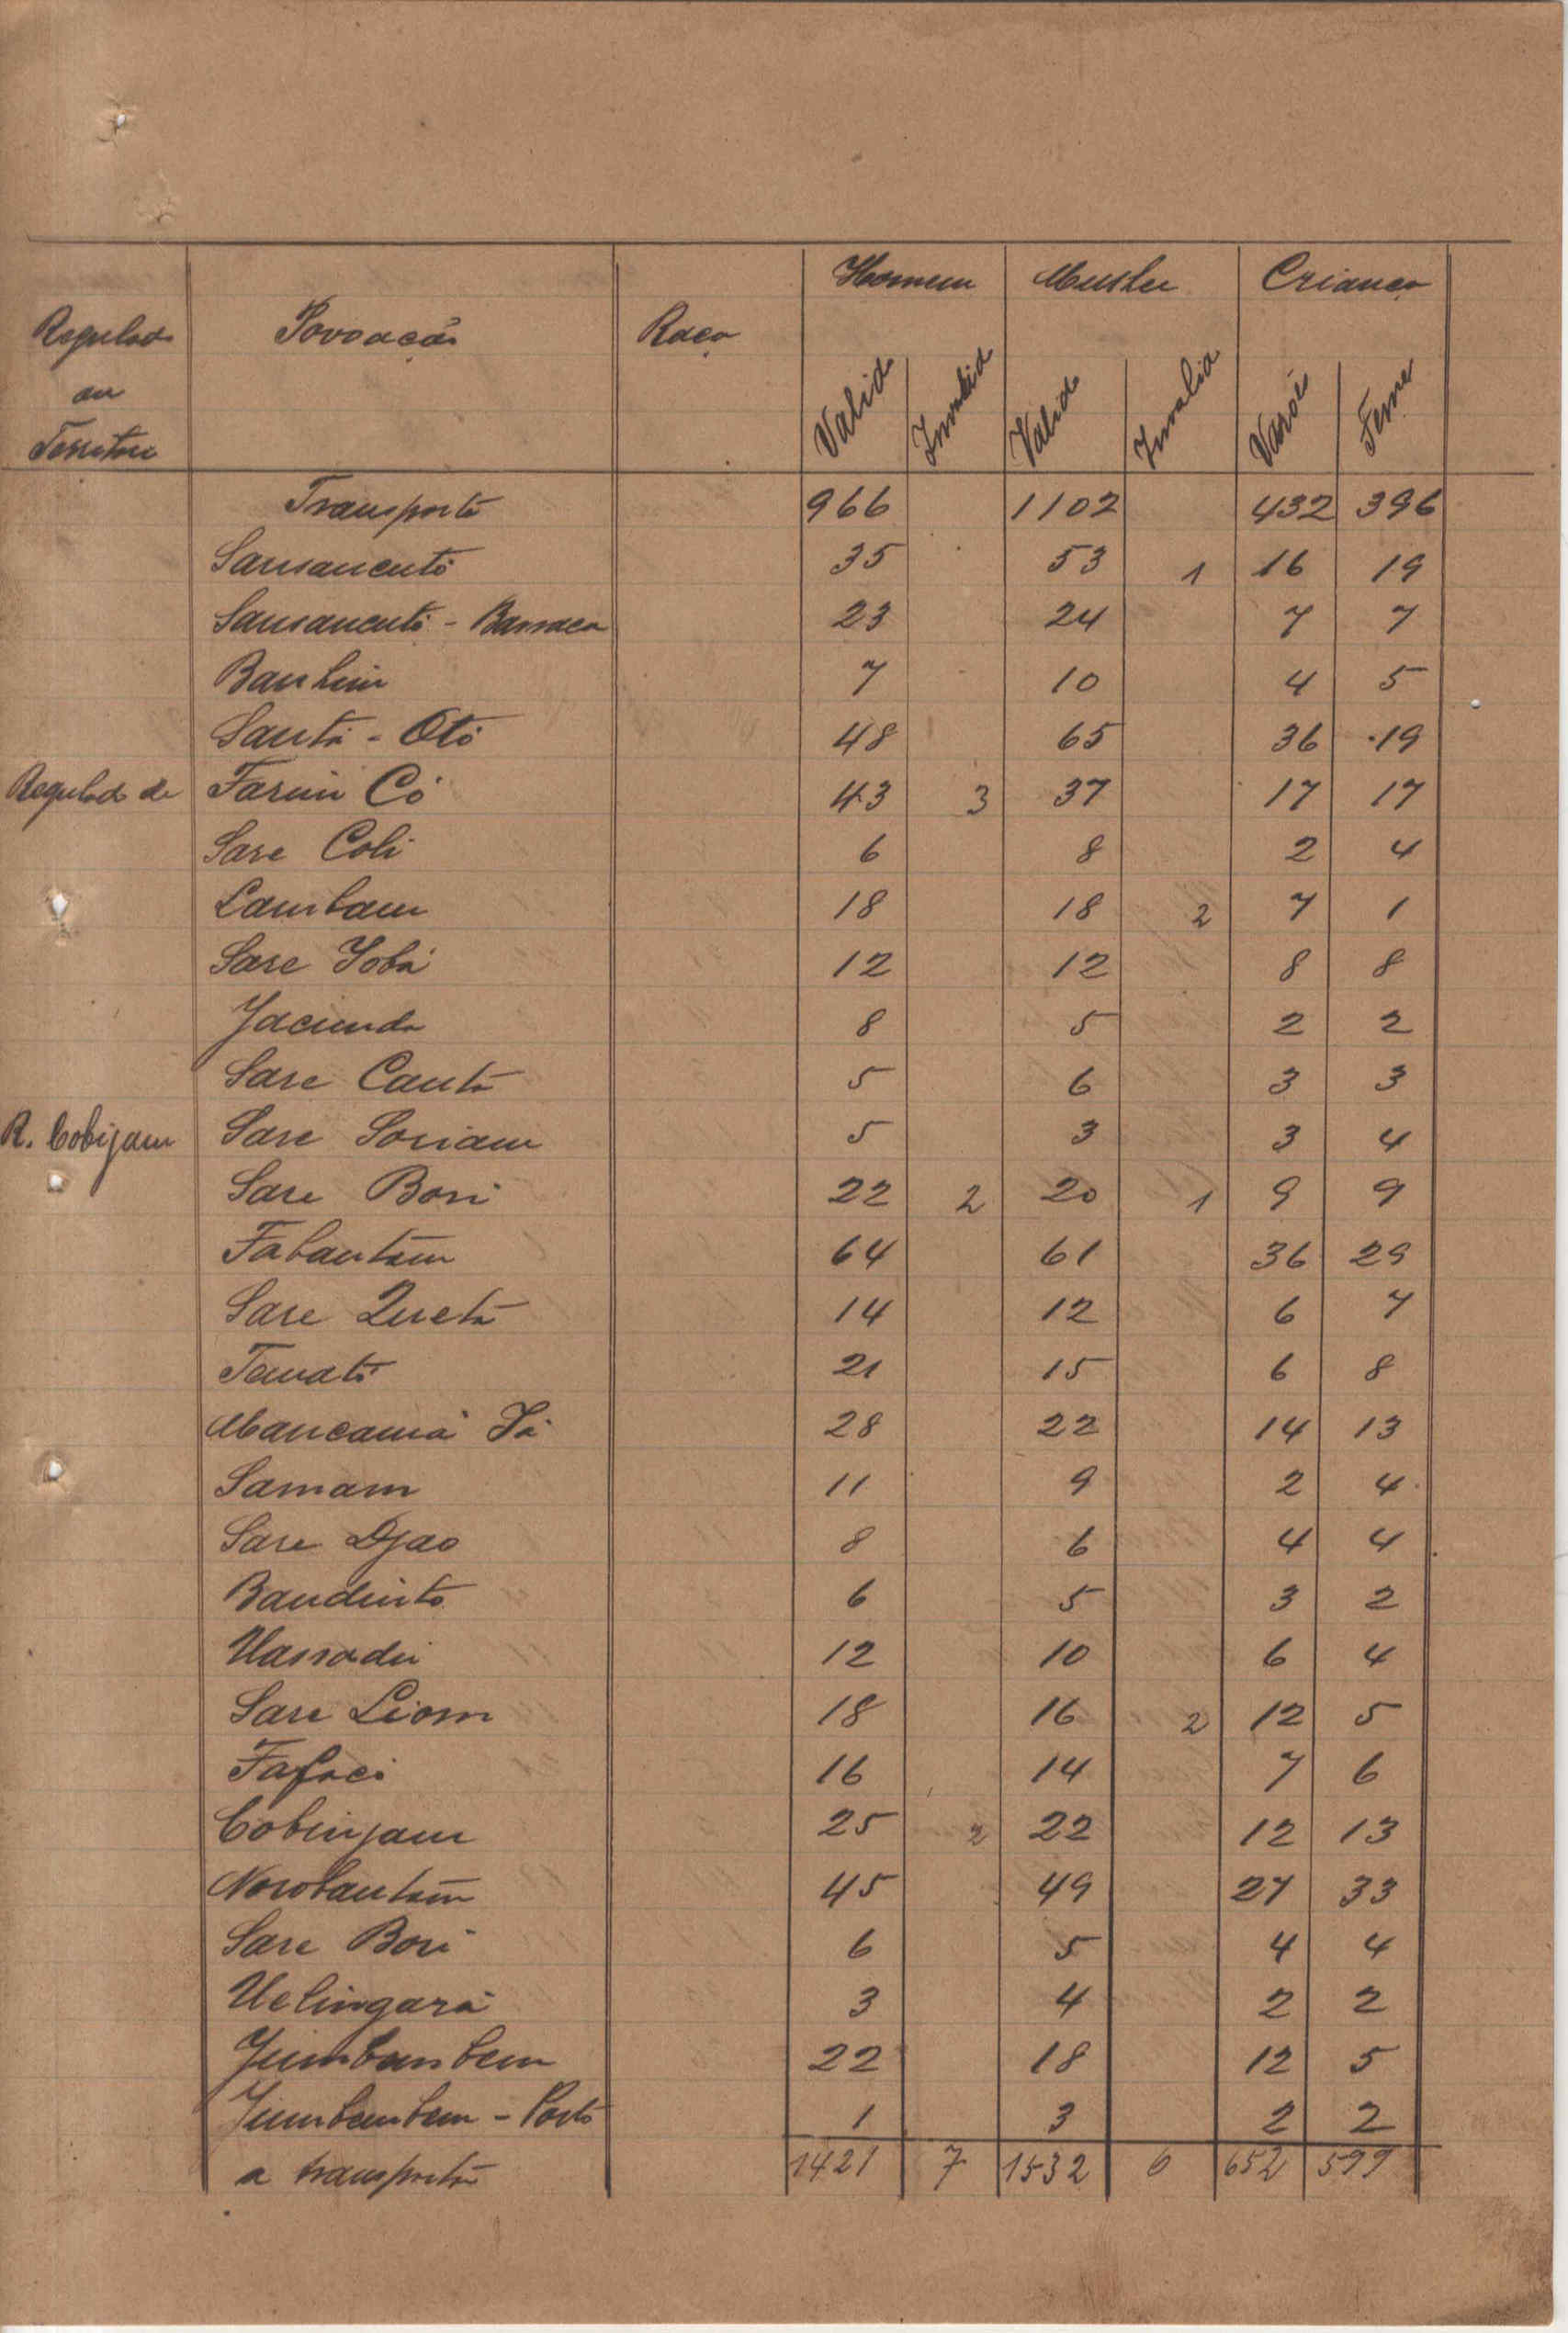 Homem Mulher Criança
Regulado Povoação Raça
ou
Territorio
Valid Invalid Valid Invalid Varões Feme
Transporte 966 1102 432 396
Sansancuto 35 53 1 16 19
Sansancuto - Barraca 23 24 7 7
Banhim 7 10 4 5
Santa - Otó 48 65 36 19
Regulado de Farim Có 43 3 37 17 17
Sare Coli 6 8 2 4
Lambam 18 18 2 7 1
Sare Iobá 12 12 8 8
Jacunda 8 5 2 2
Sare Cantá 5 6 3 3
R. Cobijam Sare Soriam 5 3 3 4
Sare Bori 22 2 20 1 9 9
Fabantam 64 61 36 29
Sare Quetá 14 12 6 7
Tamató 21 15 6 8
Mancamá Iá 28 22 14 13
Samam 11 9 2 4
Sare Djao 8 6 4 4
Bandinto 6 5 3 2
Uassadu 12 10 6 4
Sare Liom 18 16 2 12 5
Fafaci 16 14 7 6
Cobinjam 25 2 22 12 13
Norobantam 45 49 27 33
Sare Bori 6 5 4 4
Uelingará 3 4 2 2
Jumbambem 22 18 12 5
Jumbembem - Porto 1 3 2 2
a transportar 1421 7 1532 6 652 599